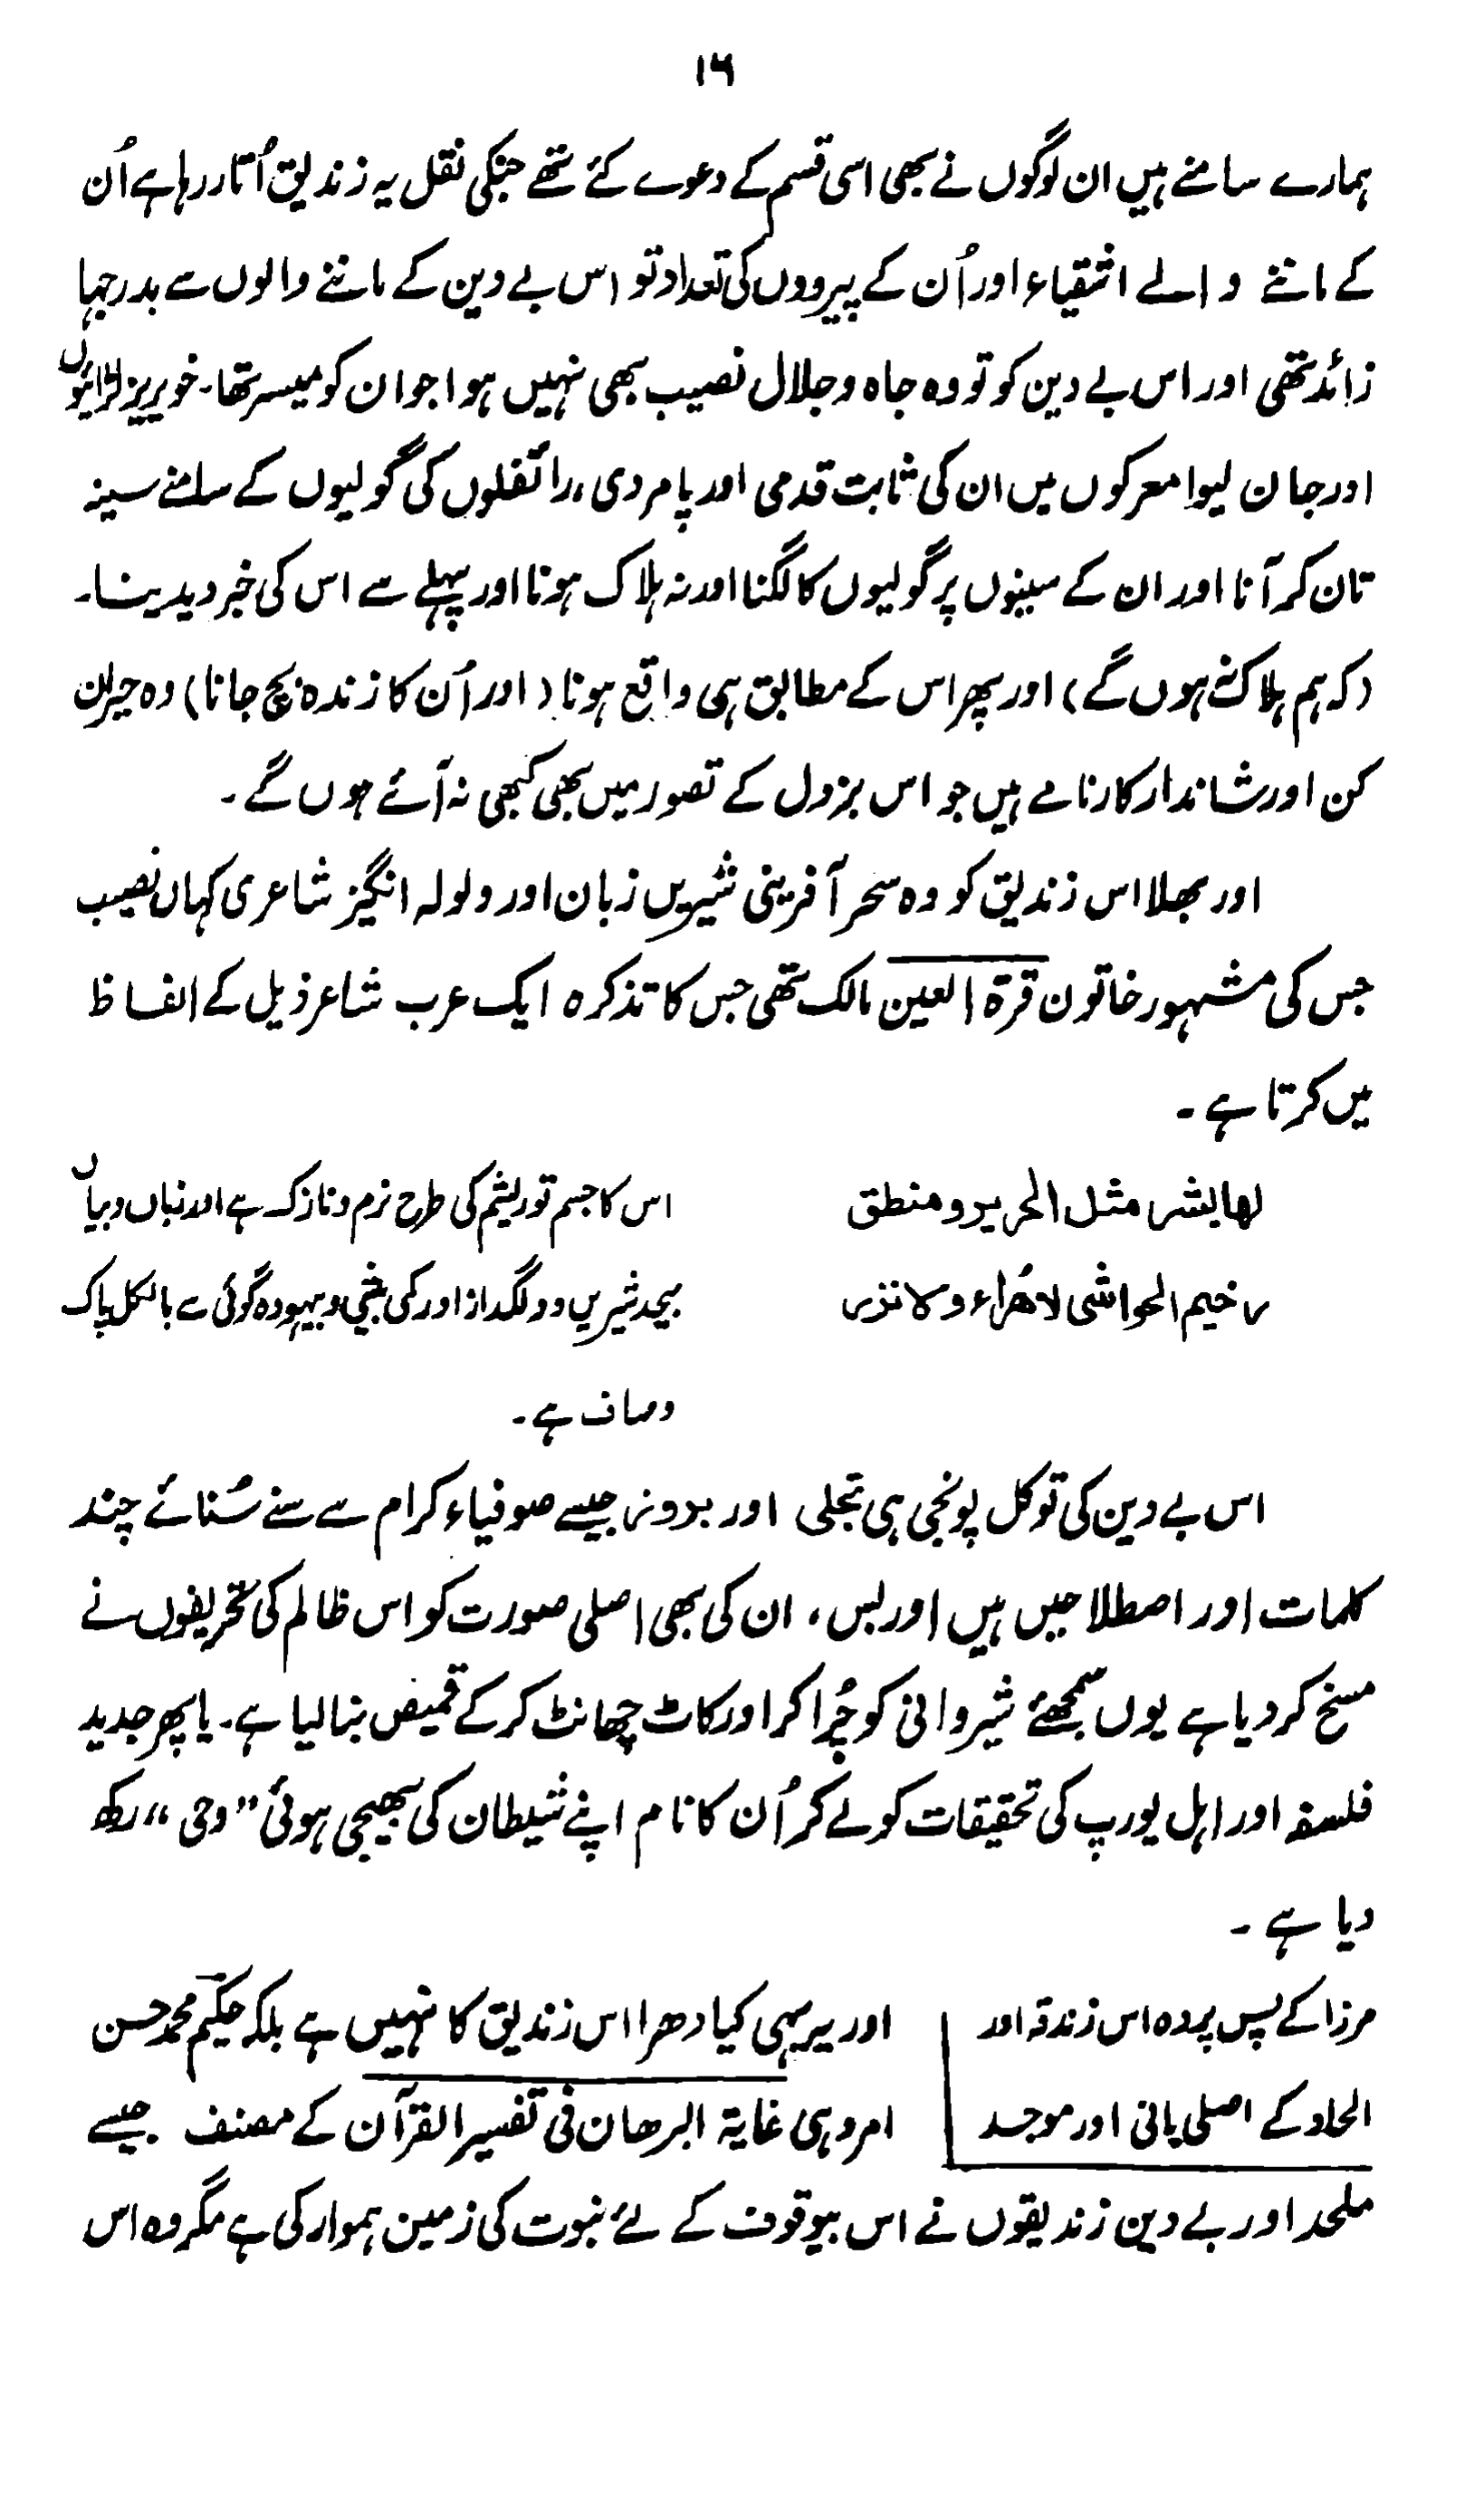 ۱۶
ہمارے سامنے ہیں ان لوگوں نے بھی اسی قسم کے دعوے کئے تھے جنکی نقل یہ زندیق اُتار رہا ہے اُن
کے ماننے والے اشقیاء اور اُن کے پیرووں کی تعداد تو اس بے دین کے ماننے والوں سے بدرجہا
زائد تھی اور اس بے دین کو تو وہ جاہ و جلال نصیب بھی نہیں ہوا جو ان کو میسر تھا۔ خوںریز لڑائیوں
اور جان لیوا معرکوں میں ان کی ثابت قدمی اور پامردی، رائفلوں کی گولیوں کے سامنے سینہ
تان کر آنا اور ان کے سینوں پر گولیوں کا لگنا اور نہ ہلاک ہونا اور پہلے سے اس کی خبر دیدینا۔
(کہ ہم ہلاک نہ ہوں گے) اور پھر اس کے مطابق ہی واقع ہونا (اور اُن کا زندہ بچ جانا) وہ حیران
کن اور شاندار کارنامے ہیں جو اس بزدل کے تصور میں بھی کبھی نہ آئے ہوں گے۔
اور بھلا اس زندیق کو وہ سحر آفرینی شیریں زبان اور ولولہ انگیز شاعری کہاں نصیب
جس کی مشہور خاتون قرۃ العین مالک تھی جس کا تذکرہ ایک عرب شاعر ذیل کے الفاظ
میں کرتا ہے۔
لها بشر مثل الحریر و منطق
اس کا جسم تو ریشم کی طرح نرم و نازک ہے اور زباں و بیاں
رخیم الحواشی لا هُراء ولا نزر
بیحد شیریں و دلگداز اور کمی بیشی و بیہودہ گوئی سے بالکل پاک
و صاف ہے۔
اس بے دین کی تو کل پونجی ہی تجلی اور بروز جیسے صوفیاء کرام سے سنے سُنائے چند
کلمات اور اصطلاحیں ہیں اور بس، ان کی بھی اصلی صورت کو اس ظالم کی تحریفوں نے
مسخ کر دیا ہے یوں سمجھئے شیروانی کو چُرا کر اور کاٹ چھانٹ کر کے قمیض بنا لیا ہے۔ یا پھر جدید
فلسفہ اور اہل یورپ کی تحقیقات کو لے کر اُن کا نام اپنے شیطان کی بھیجی ہوئی "وحی" رکھ
دیا ہے۔
مرزا کے پس پردہ اس زندقہ اور
الحاد کے اصلی بانی اور موجد
اور یہ یہی کیا دھرا اس زندیق کا نہیں ہے بلکہ حکیم محمد حسن
امروہی غایۃ البرھان فی تفسیر القرآن کے مصنف جیسے
ملحد اور بے دین زندیقوں نے اس بیوقوف کے لئے نبوت کی زمین ہموار کی ہے مگر وہ اس